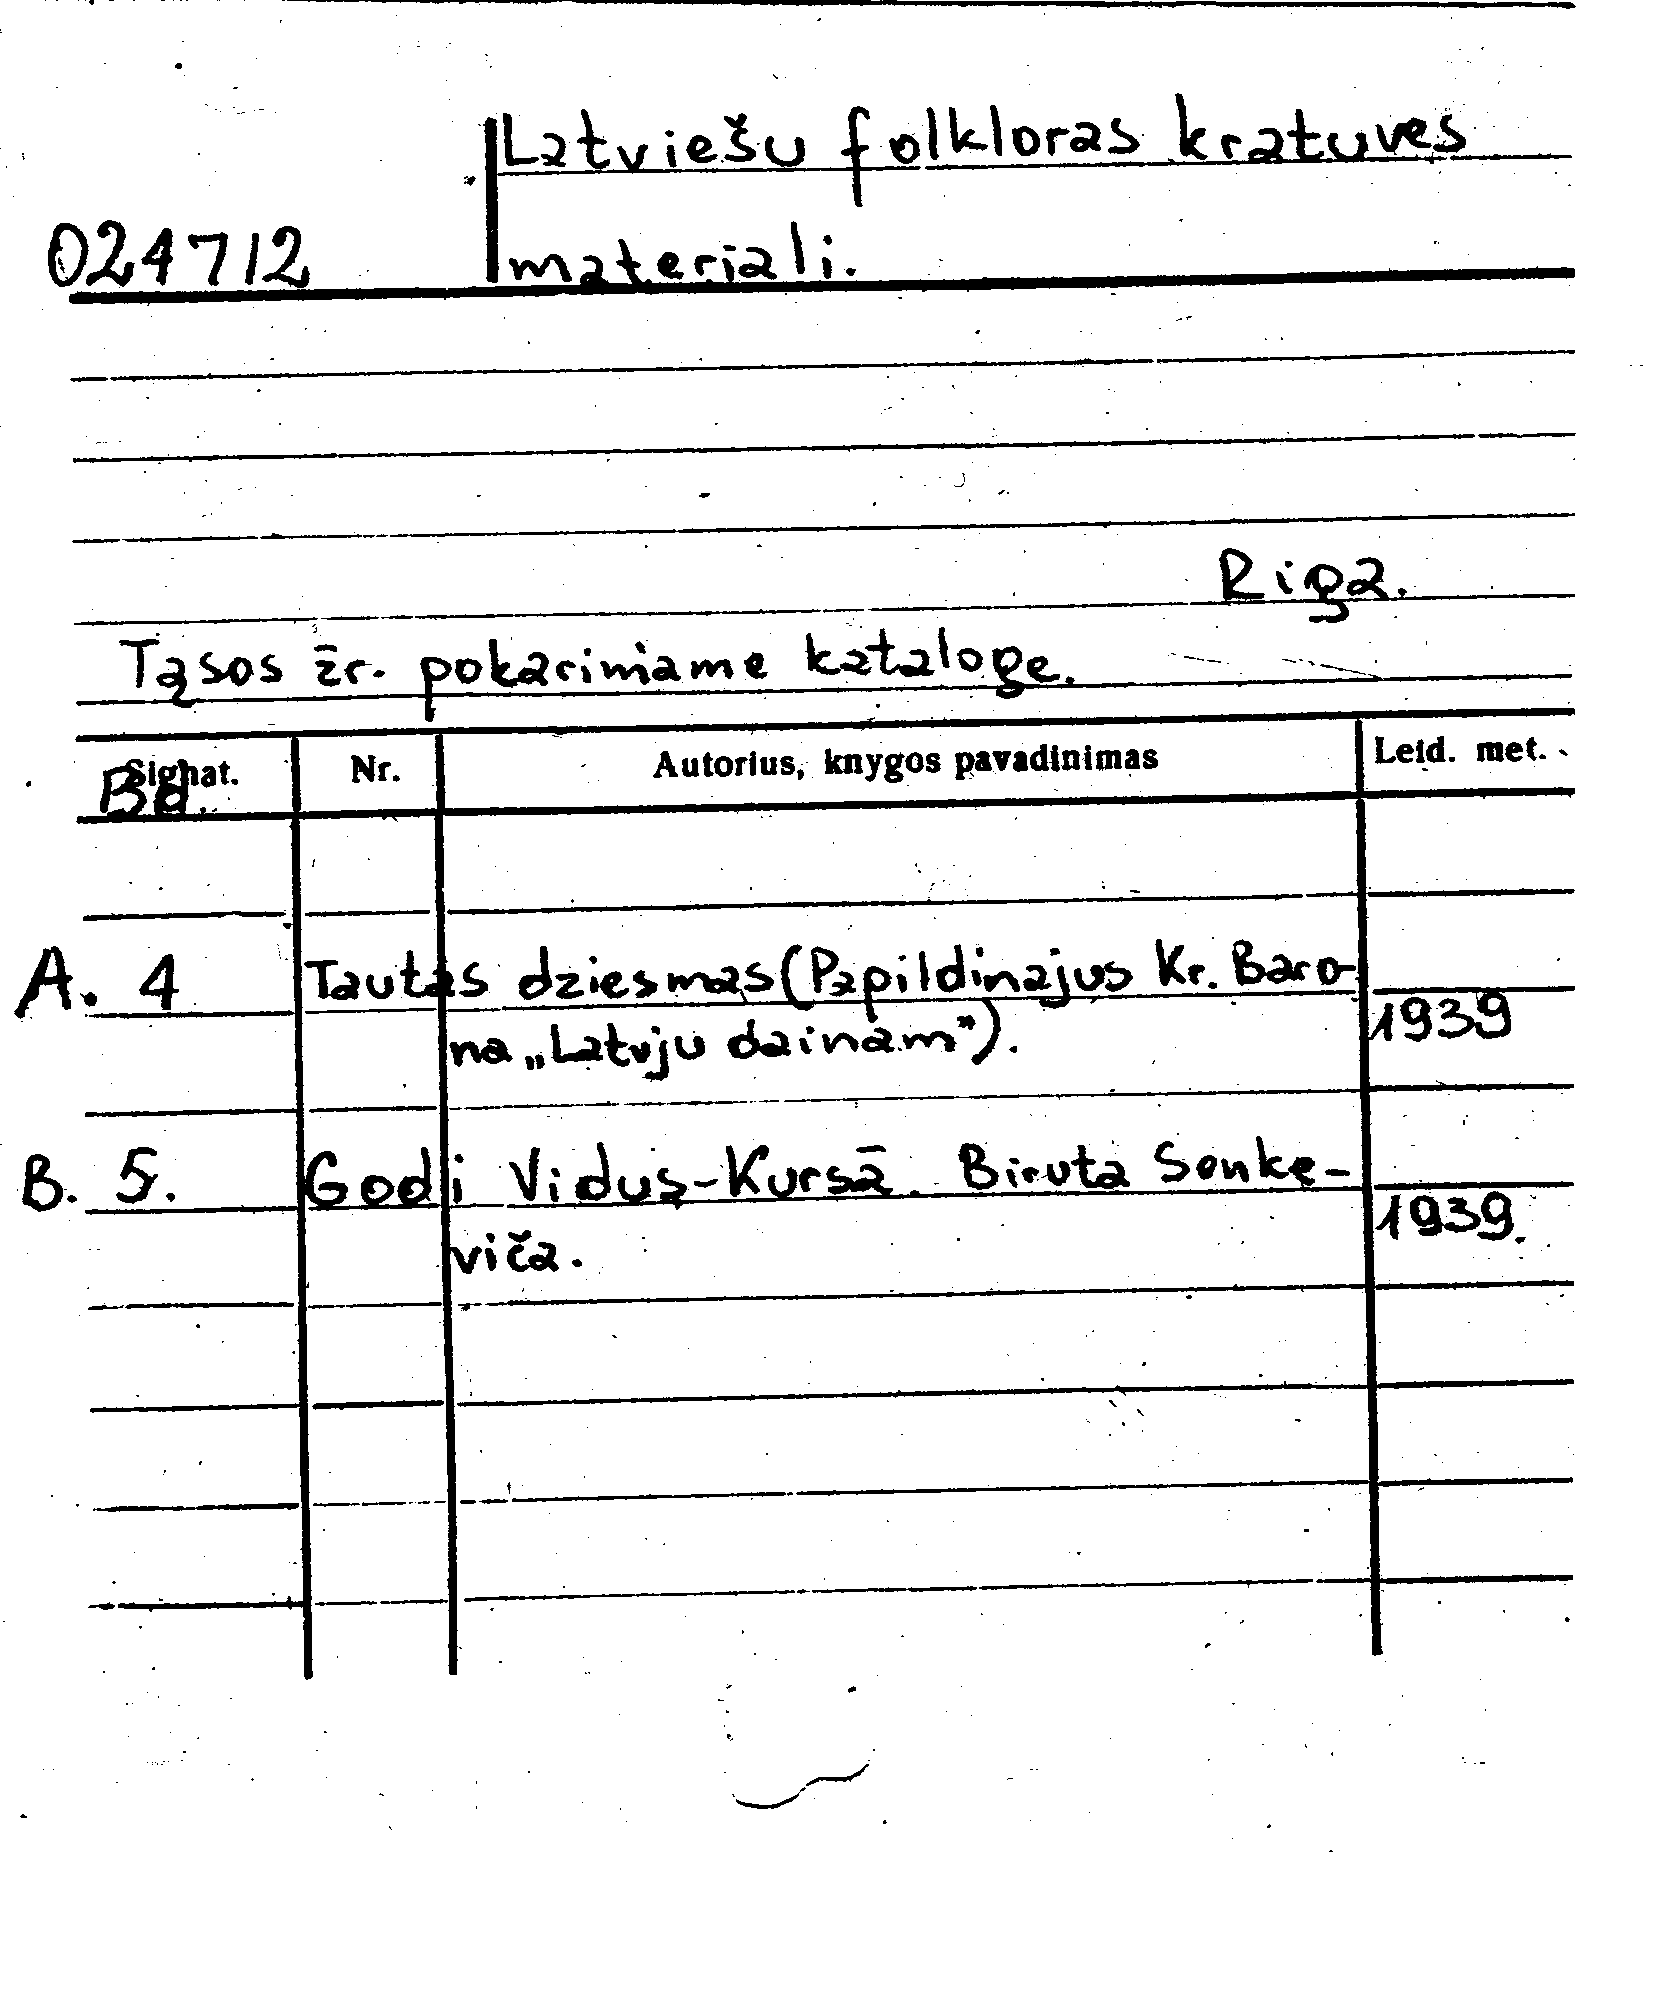 Latviešu folkloras kratuves
024712
materiali.
Riga.
Tąsos žr. pokariniame kataloge.
Signat. Nr. Autorius, knygos pavadinimas Leid. met.
Bd.
A. 4 Tautas dziesmas (Papildinajus Kr. Baro-
na „Latvju dainam”). 1939
B. 5. Godi Vidus-Kursā. Biruta Senke-
viča. 1939.